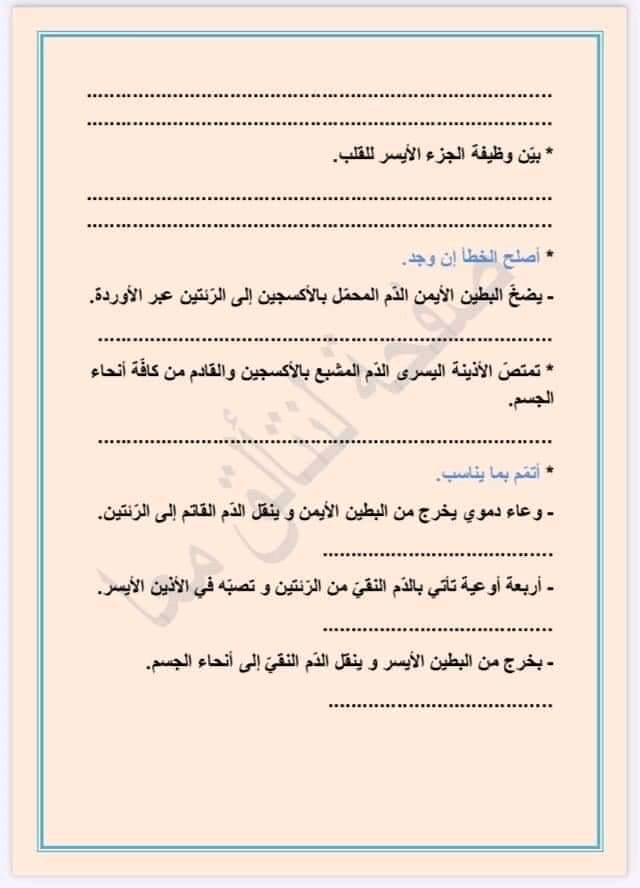 ................................................................................
................................................................................
* بيّن وظيفة الجزء الأيسر للقلب.
................................................................................
................................................................................
* أصلح الخطأ إن وجد.
- يضخّ البطين الأيمن الدّم المحمّل بالأكسجين إلى الرّئتين عبر الأوردة.
................................................................................
* تمتصّ الأذينة اليسرى الدّم المشبع بالأكسجين والقادم من كافّة أنحاء
الجسم.
................................................................................
* أتمّم بما يناسب.
- وعاء دموي يخرج من البطين الأيمن و ينقل الدّم القاتم إلى الرّئتين.
........................................
- أربعة أوعية تأتي بالدّم النقيّ من الرّئتين و تصبّه في الأذين الأيسر.
........................................
- يخرج من البطين الأيسر و ينقل الدّم النقيّ إلى أنحاء الجسم.
.......................................
صفحة لنتألق معا